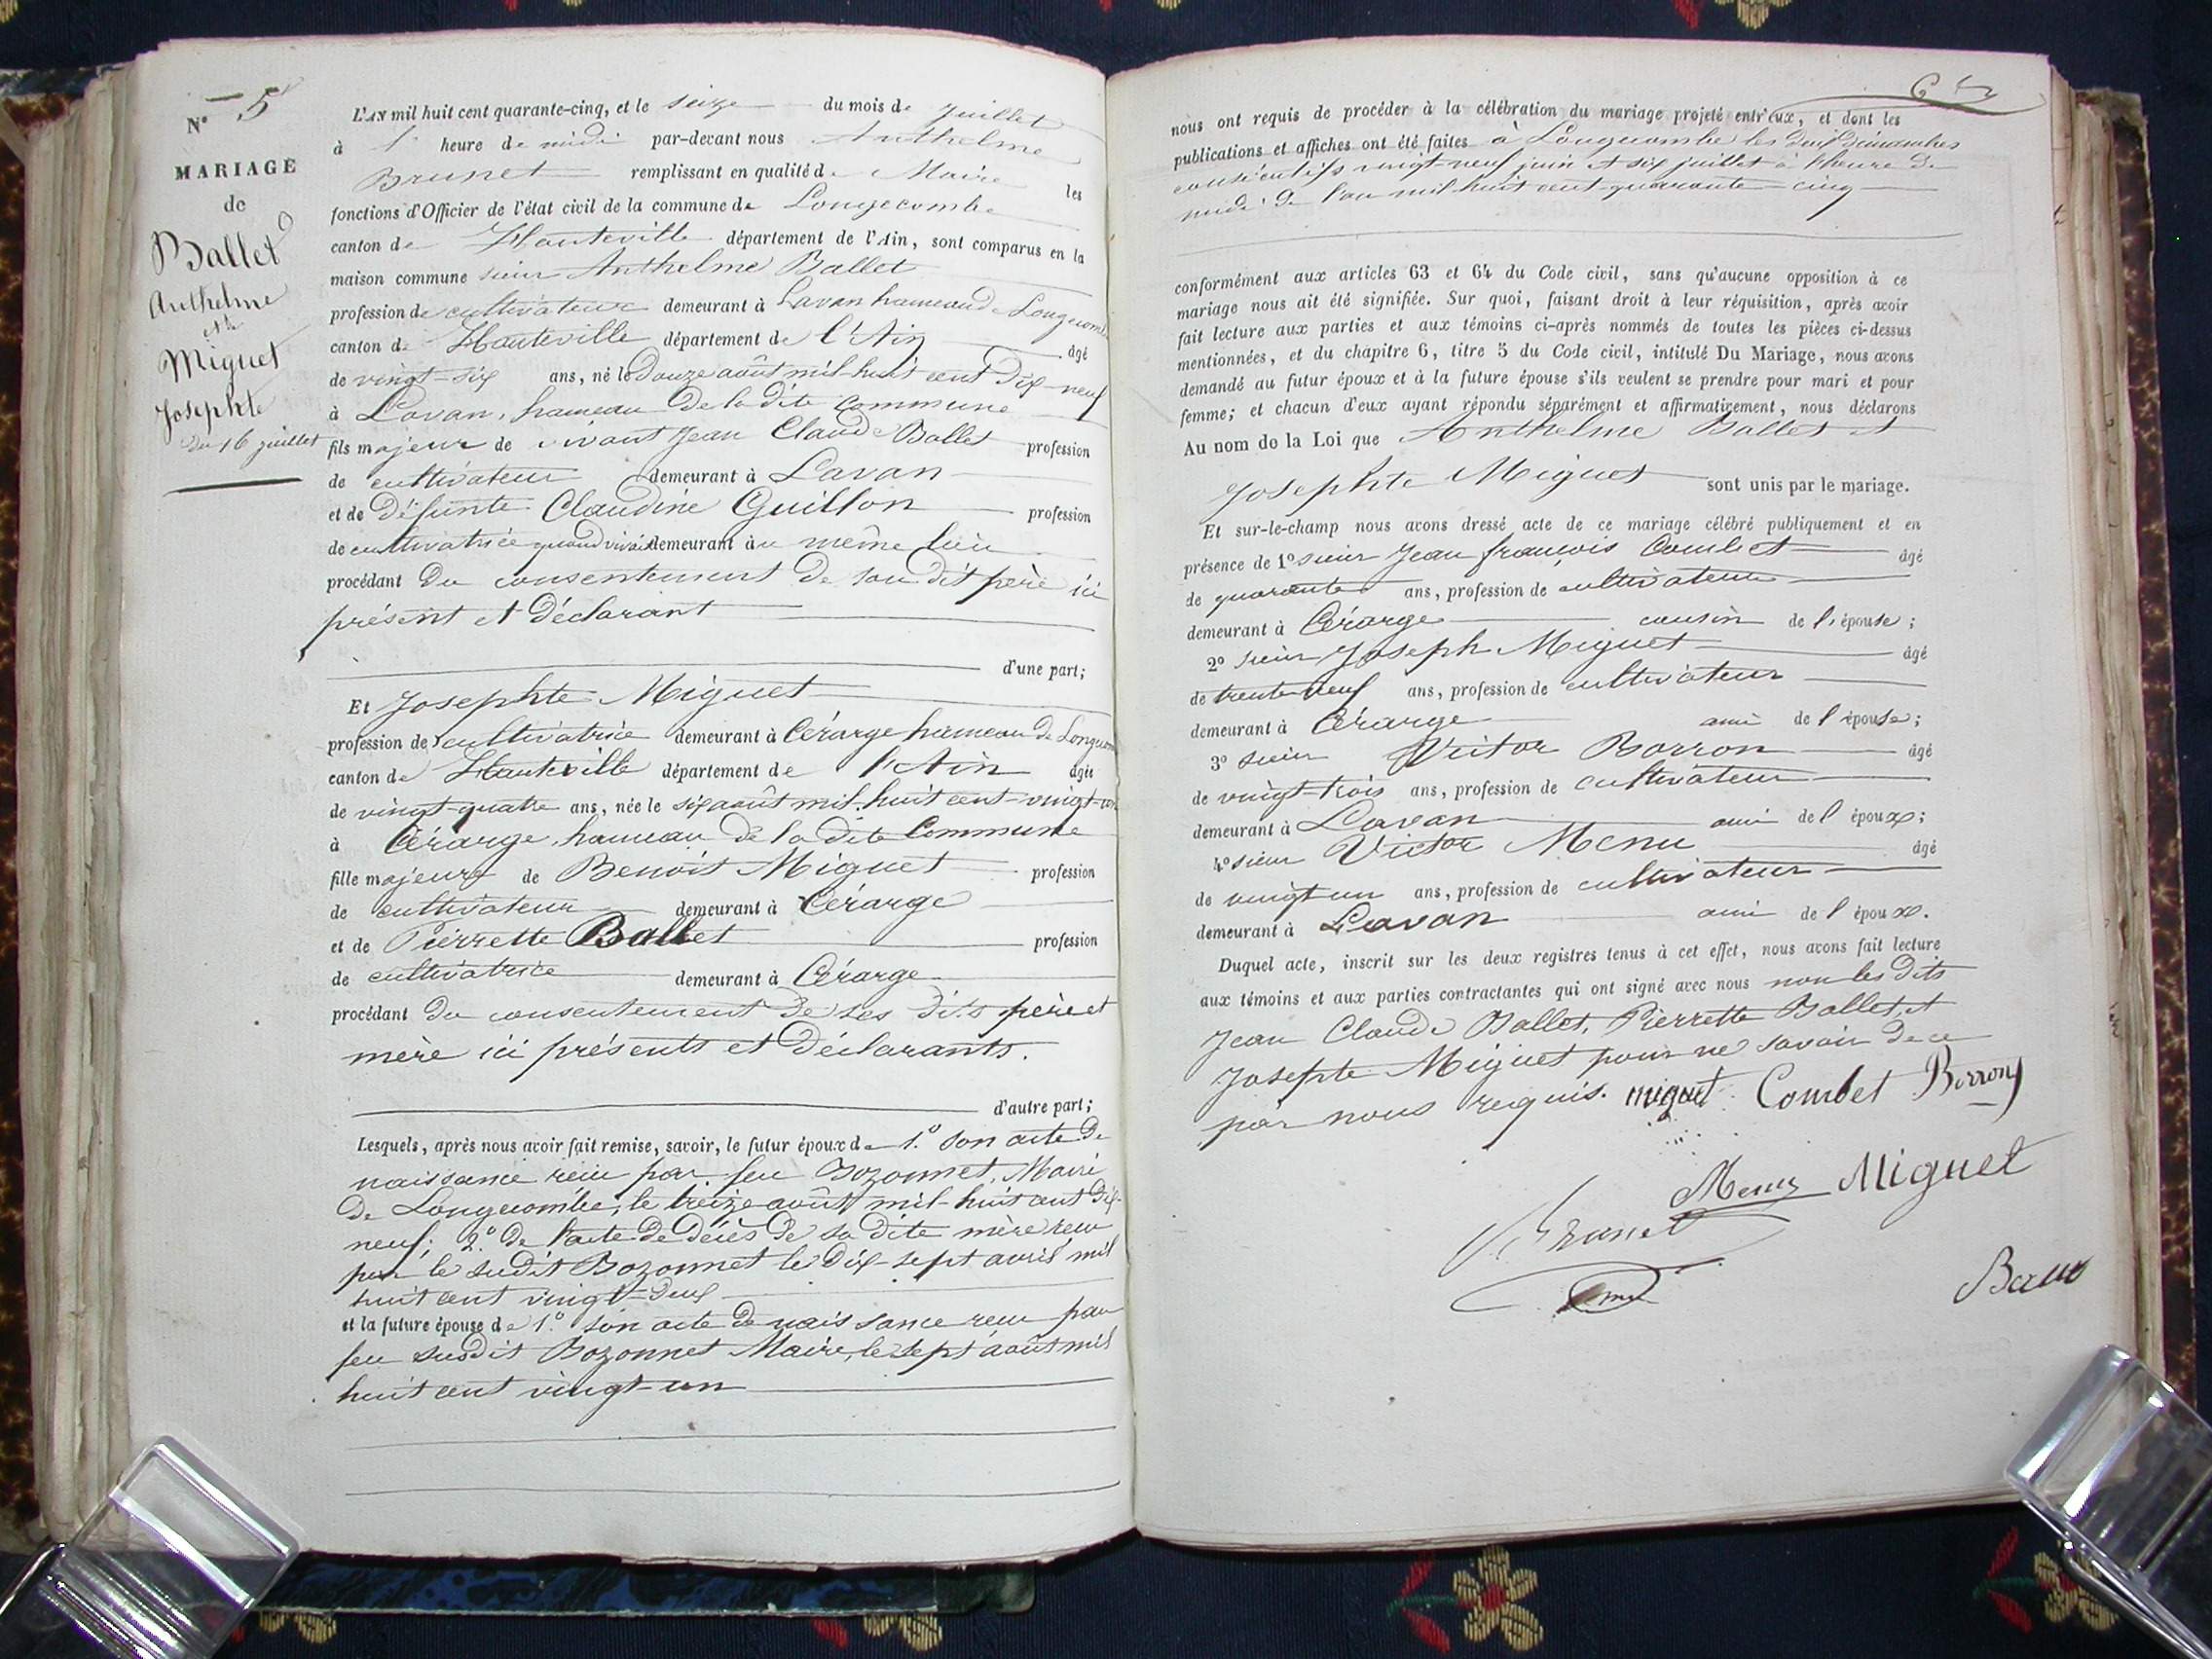 N° 5
MARIAGE
de
Ballet
Anthelme
et de
Miguet
Josephte
du 16 juillet
L'AN mil huit cent quarante-cinq, et le seize du mois de juillet
à 1 heure de midi par-devant nous Anthelme
Brunet remplissant en qualité de Maire les
fonctions d'Officier de l'état civil de la commune de Longecombe
canton de Hauteville département de l'Ain, sont comparus en la
maison commune sieur Anthelme Ballet
profession de cultivateur demeurant à Lavan hameau de Longecombe
canton de Hauteville département de l'Ain âgé
de vingt-six ans, né le douze août mil-huit cent dix-neuf
à Lavan, hameau de la dite commune
fils majeur de vivant Jean Claude Ballet profession
de cultivateur demeurant à Lavan
et de défunte Claudine Guillon profession
de cultivatrice quand vivait demeurant au même lieu
procédant du consentement de son dit père ici
présent et déclarant
d'une part;
Et Josephte Miguet
profession de cultivatrice demeurant à Cérarge hameau de Longecombe
canton de Hauteville département de l'Ain âgée
de vingt-quatre ans, née le six août mil-huit cent-vingt-un
à Cérarge, hameau de la dite Commune
fille majeure de Benoît Miguet profession
de cultivateur demeurant à Cérarge
et de Pierrette Ballet profession
de cultivatrice demeurant à Cérarge
procédant du consentement de ses dits père et
mère ici présents et déclarants.
d'autre part;
Lesquels, après nous avoir fait remise, savoir, le futur époux de 1.° son acte de
naissance reçu par feu Bozonnet, Maire
de Longecombe, le treize août mil-huit cent dix-
neuf; 2.° de l'acte de décès de sa dite mère reçu
par le sudit Bozonnet le dix-sept avril mil
huit cent vingt-deux
et la future épouse de 1.° son acte de naissance reçu par
feu susdit Bozonnet Maire, le sept août mil
huit cent vingt-un
nous ont requis de procéder à la célébration du mariage projeté entr'eux, et dont les
publications et affiches ont été faites à Longecombe les deux dimanches
consécutifs vingt-neuf juin et six juillet à l'heure de
midi de l'an mil-huit cent quarante-cinq
conformément aux articles 63 et 64 du Code civil, sans qu'aucune opposition à ce
mariage nous ait été signifiée. Sur quoi, faisant droit à leur réquisition, après avoir
fait lecture aux parties et aux témoins ci-après nommés de toutes les pièces ci-dessus
mentionnées, et du chapitre 6, titre 5 du Code civil, intitulé Du Mariage, nous avons
demandé au futur époux et à la future épouse s'ils veulent se prendre pour mari et pour
femme; et chacun d'eux ayant répondu séparément et affirmativement, nous déclarons
Au nom de la Loi que Anthelme Ballet et
Josephte Miguet sont unis par le mariage.
Et sur-le-champ nous avons dressé acte de ce mariage célébré publiquement et en
présence de 1° sieur Jean françois Combet âgé
de quarante ans, profession de cultivateur
demeurant à Cérarge cousin de l'épouse;
2° sieur Joseph Miguet âgé
de trente-neuf ans, profession de cultivateur
demeurant à Cérarge ami de l'épouse;
3° sieur Victor Borron âgé
de vingt-trois ans, profession de cultivateur
demeurant à Lavan ami de l'époux;
4° sieur Victor Menu âgé
de vingt un ans, profession de cultivateur
demeurant à Lavan ami de l'époux.
Duquel acte, inscrit sur les deux registres tenus à cet effet, nous avons fait lecture
aux témoins et aux parties contractantes qui ont signé avec nous non les dits
Jean Claude Ballet, Pierrette Ballet, et
Josepte Miguet pour ne savoir de ce
par nous requis. miguet Combet Borron
Menu Miguet
Brunet